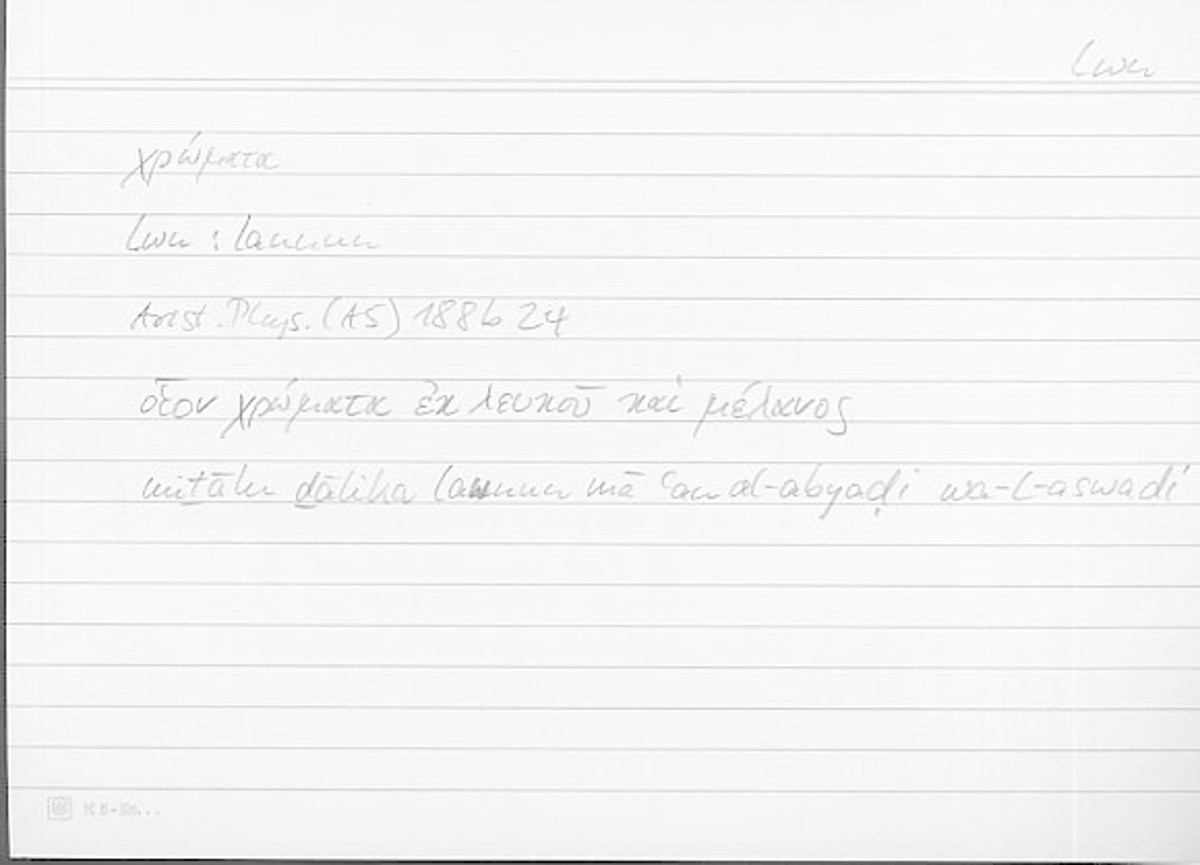 lwn
χρώματα
lwn : launun
Arist. Phys. (AS) 188b 24
οἷον χρώματα ἐκ λευκοῦ καὶ μέλανος
miṯālu ḏālika launun mā ʿan al-abyaḍi wa-l-aswadi